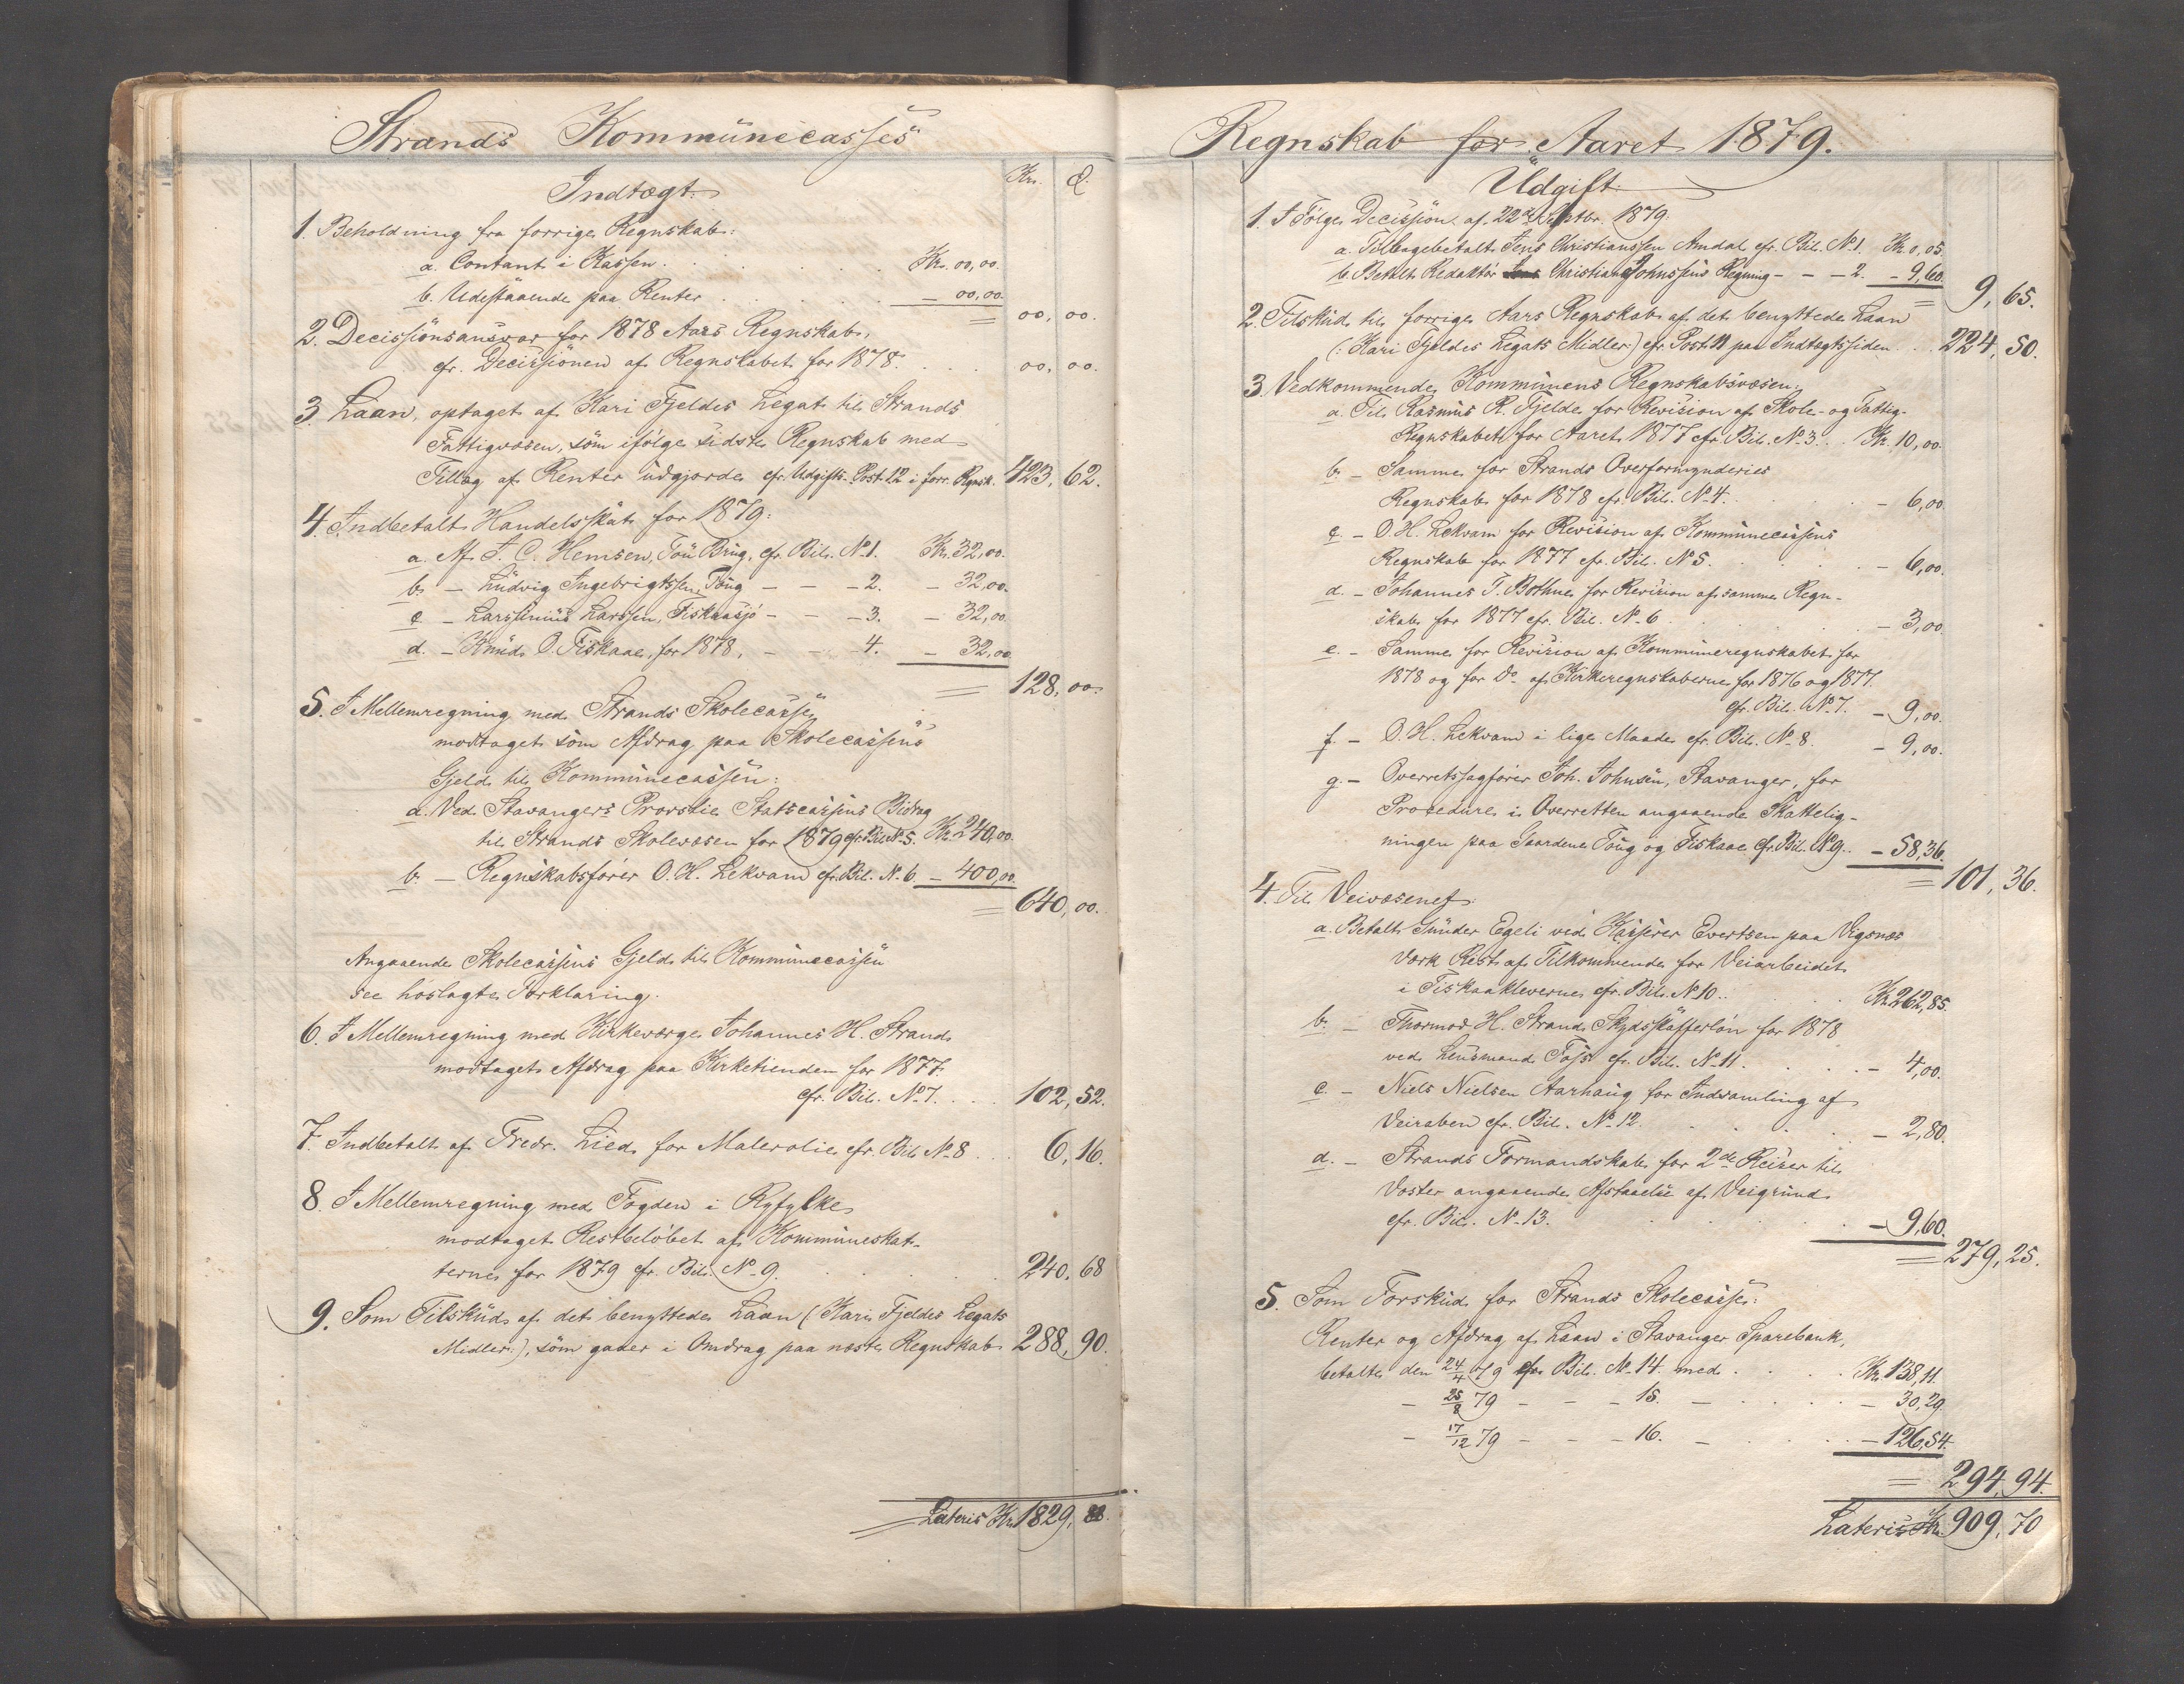 Strands Kommunecasses
Kr. Ø.
Indtægt:
1. Beholdning fra forrige Regnskab:
a. Contant i Kassen . . . . . Kr. 00,00.
b. Udestaaende paa Renter . . . . . — 00,00.
= 00, 00.
2. Decissionsansvar for 1878 Aars Regnskab,
cfr. Decissionen af Regnskabet for 1878. . . . 00, 00.
3. Laan, optaget af Kari Fjeldes Legat til Strands
Fattigvæsen, som ifølge sidste Regnskab med
Tillæg af Renter udgjorde cfr. Udgifts-Post 12 i forr. Regnsk. 423, 62.
4. Indbetalt Handelsskat for 1879:
a. Af T. C. Hemsen, Tou Brug, cfr. Bil. No 1. Kr. 32,00.
b. — Ludvig Ingebrigtssen Toug — — — 2. — 32,00.
c. — Larssinius Larssen, Fiskaasjø — — — 3. — 32,00.
d. — Knud O. Fiskaae, for 1878, — — — 4. — 32,00
= 128, 00.
5. I Mellemregning med Strands Skolecasse,
modtaget som Afdrag paa Skolecassens
Gjeld til Kommunecassen:
a. Ved Stavangers Provstie Statscassens Bidrag
til Strands Skolevæsen for 1879 cfr. Bil. No 5. Kr. 240,00.
b. — Regnskabsfører O. H. Lekvam cfr. Bil. N. 6 — 400,00.
= 640, 00.
Angaaende Skolecassens Gjeld til Kommunecassen
see hoslagte Forklaring.
6. I Mellemregning med Kirkeværge Johannes H. Strand
modtaget Afdrag paa Kirketienden for 1877
cfr. Bil. No 7. . . . 102, 52.
7. Indbetalt af Fredr. Lied for Malerolie cfr. Bil. No 8 . . . 6, 16.
8. I Mellemregning med Fogden i Ryfylke
modtaget Restbeløbet af Kommuneskat-
terne for 1879 cfr. Bil. No 9. . . . . . 240, 68
9. Som Tilskud af det benyttede Laan (Kari Fjeldes Legats
Midler:), som gaaer i Omdrag paa næste Regnskab 288, 90.
Lateris Kr. 1829, 88.
Regnskab for Aaret 1879.
Udgift:
1. I Følge Decission af 22de Septbr. 1879:
a. Tilbagebetalt Jens Christianssen Amdal cfr. Bil. No 1. Kr. 0,05.
b. Betalt Redaktør Christian Johnssens Regning — — — 2. — 9,60.
= 9, 65.
2. Tilskud til forrige Aars Regnskab af det benyttede Laan
(: Kari Fjeldes Legats Midler:) cfr. Post 11 paa Indtægtssiden . . . 224, 50.
3. Vedkommende Kommunens Regnskabsvæsen:
a. Til Rasmus R. Fjelde for Revision af Skole- og Fattig-
Regnskabet for Aaret 1877 cfr. Bil. No 3. . . Kr. 10,00.
b. — Samme for Strands Overformynderies
Regnskab for 1878 cfr. Bil. No 4. . . . . — 6,00.
c. — O. H. Lekvam for Revision af Kommunecassens
Regnskab for 1877 cfr. Bil. No 5. . . . — 6,00.
d. — Johannes T. Bothne for Revision af samme Regn-
skab for 1877 cfr. Bil. No 6 . . . . — 3,00
e. — Samme for Revision af Kommuneregnskabet for
1878 og for Do af Kirkeregnskaberne for 1876 og 1877.
cfr. Bil. No 7. — 9,00.
f. — O. H. Lekvam i lige Maade cfr. Bil. No 8. — 9,00.
g. — Overretssagfører Joh. Johnsen, Stavanger, for
Procedure i Overretten angaaende Skattelig-
ningen paa Gaardene Toug og Fiskaae cfr. Bil. No 9. — 58,36.
= 101, 36.
4. Til Veivæsenet:
a. Betalt Gunder Egeli ved Kasserer Evertsen paa Vigsnæs
Værk Rest af Tilkommende for Veiarbeidet
i Fiskaakleverne cfr. Bil. No 10. . . . . Kr. 262,85.
b. — Thormod H. Strand Skydsskafferløn for 1878
ved Lensmand Tøjs cfr. Bil. No 11. . . . . — 4,00.
c. — Niels Nielsen Aarhaug for Indsamling af
Veiraben cfr. Bil. No 12. . . . . . — 2,80.
d. — Strands Formandskab for 2de Reiser til
Voster angaaende Afstaaelse af Veigrund
cfr. Bil. No 13. . . . . . — 9,60.
= 279, 25.
5. Som Forskud for Strands Skolecasse:
Renter og Afdrag af Laan i Stavanger Sparebank,
betalte den 24/4 79 cfr. Bil. No 14 med . . . . Kr. 138,11.
— 25/8 79 — — — 15. — . . . . — 30,29.
— 17/12 79 — — — 16. — . . . — 126,54.
= 294, 94.
Lateris Kr. 909, 70